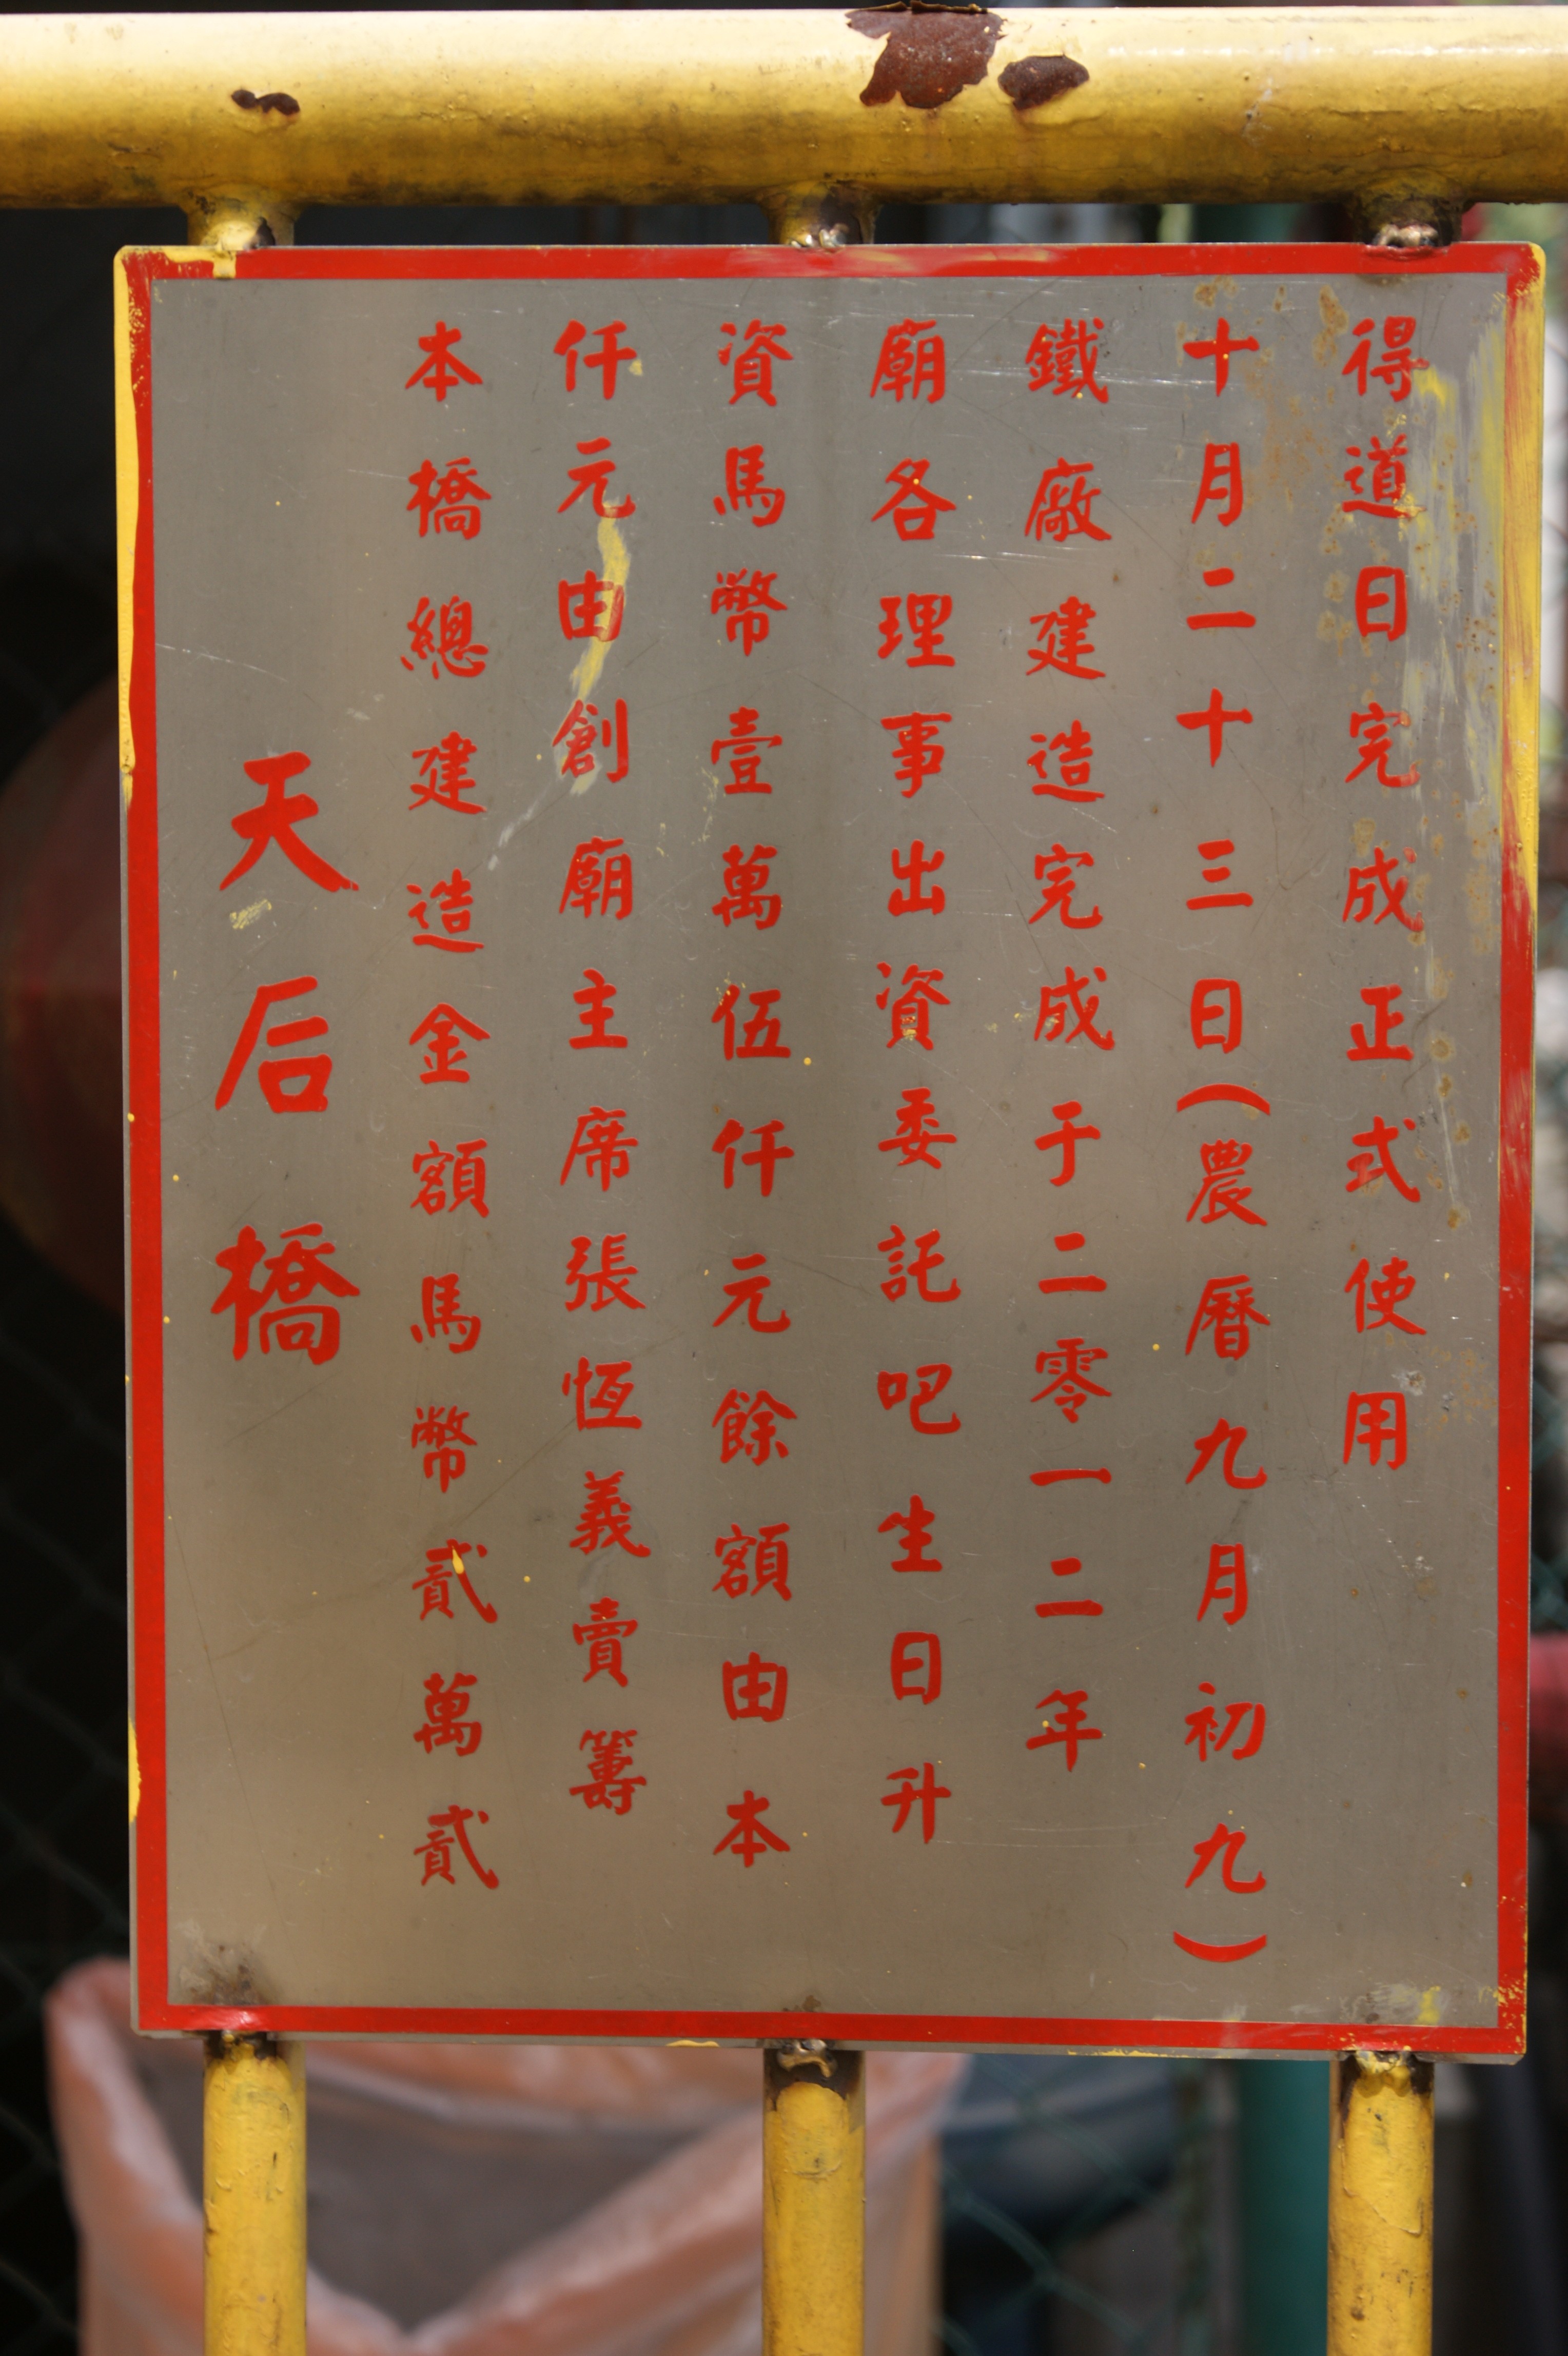 天后橋
本橋總建造金額馬幣貳萬貳
仟元由創廟主席張恆義賣籌
資馬幣壹萬伍仟元餘額由本
廟各理事出資委託吧生日升
鐵廠建造完成于二零一二年
十月二十三日(農曆九月初九)
得道日完成正式使用